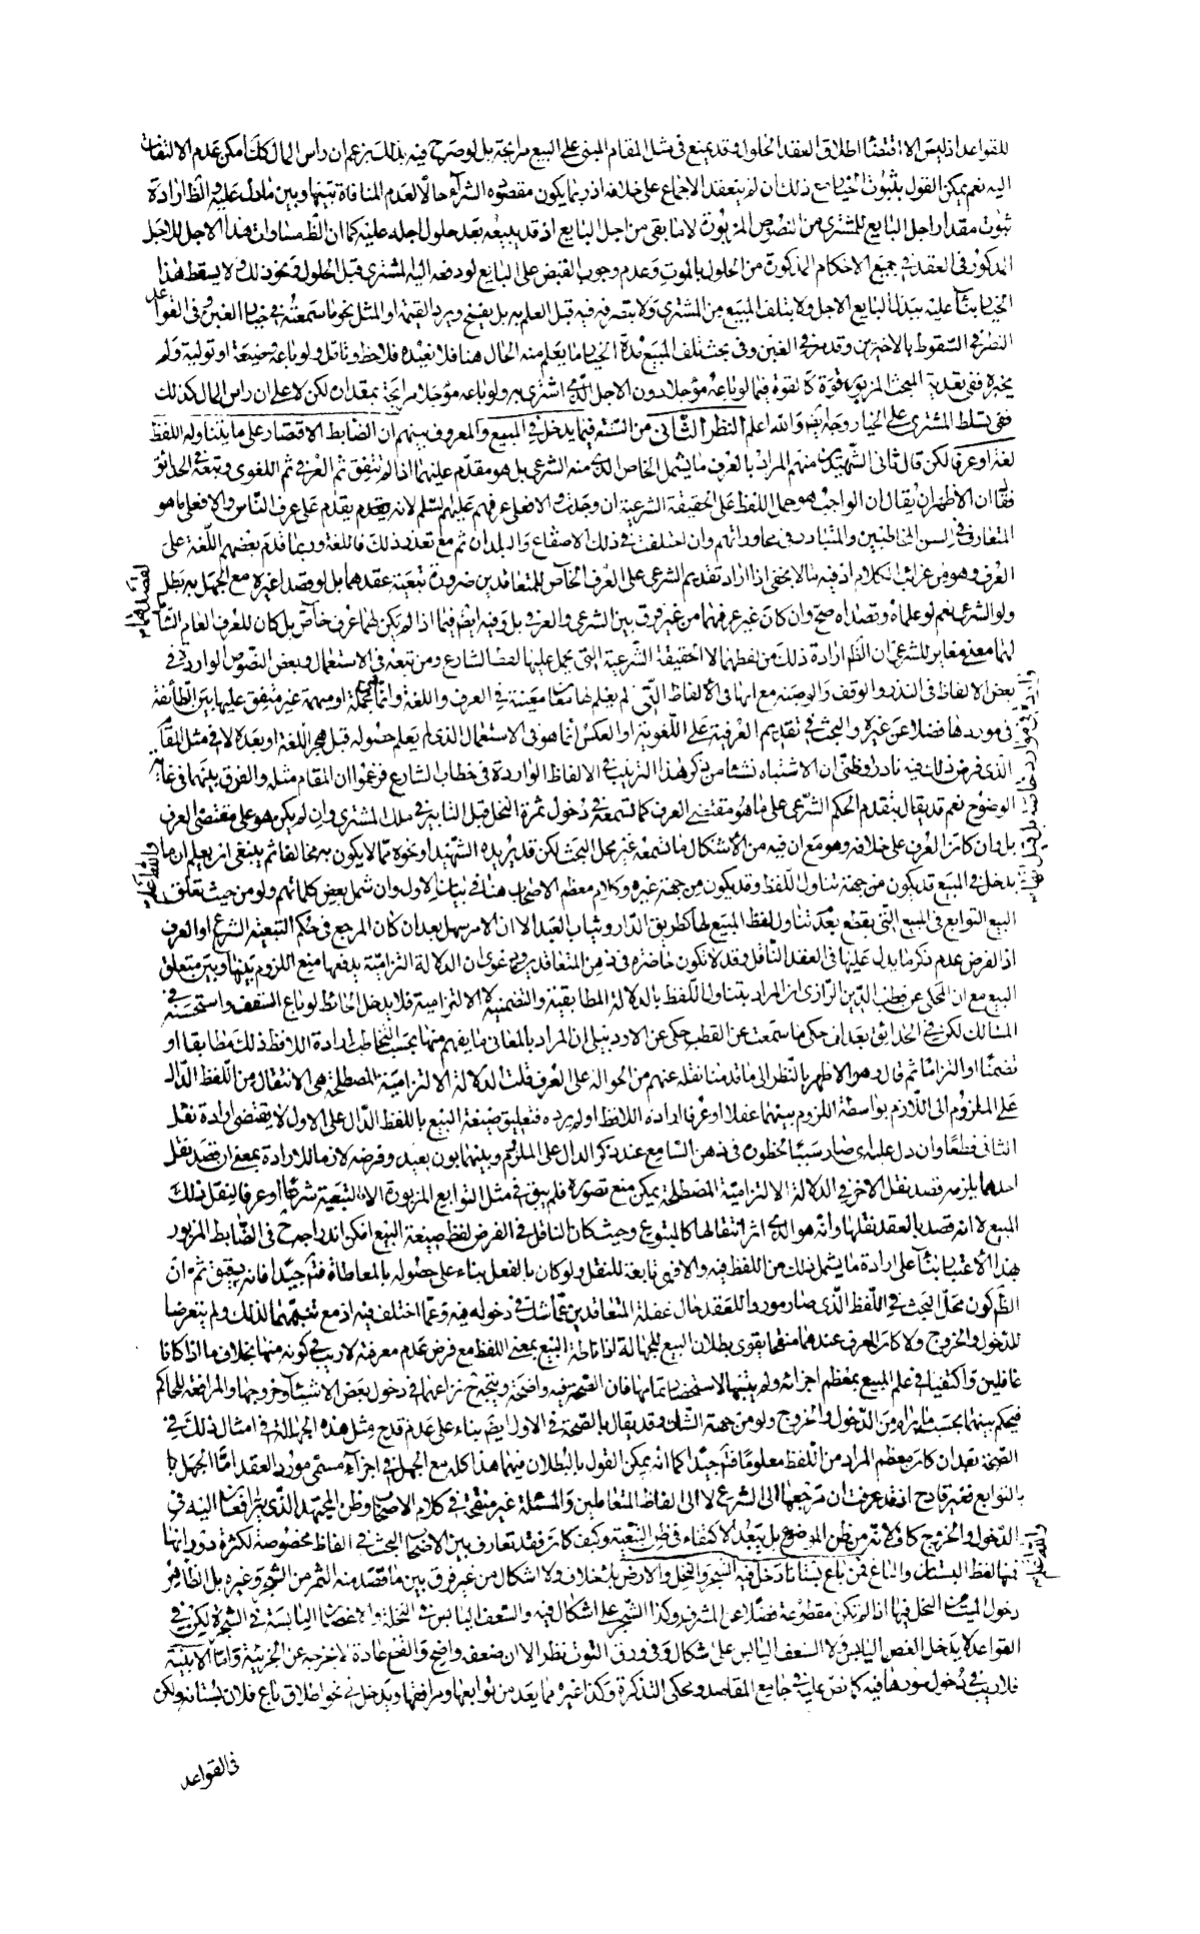 للقواعد اذ ليس الا اقتضا اطلاق العقد الحلول وقد يمنع فى مثل المقام المبنى على البيع مرابحة بل لو صرح فيه بذلك بزعم ان راس المال كك امكن عدم الالتفات
اليه نعم يمكن القول بثبوت الخيار مع ذلك ان لم ينعقد الاجماع على خلافه اذ ربما يكون مقصوده الشرآء حالا لعدم المنافاة بينها وبين ما دل عليه والظ ارادة
ثبوت مقدار اجل البايع للمشترى من النصوص المزبورة لا ما بقى من اجل البايع اذ قد يبيعه بعد حلول اجله عليه كما ان الظ مساواة هذا الاجل للاجل
المذكور فى العقد فى جميع الاحكام المذكورة من الحلول بالموت وعدم وجوب القبض على البايع لو دفعه اليه المشترى قبل الحلول ونحو ذلك ولا يسقط هذا
الخيار بناء عليه ببذل البايع الاجل ولا بتلف المبيع من المشترى ولا بتصرفه فيه قبل العلم به بل يفسخ ويرد القيمة او المثل نحو ما سمعته فى خيار الغبن و فى القواعد
النظر فى السقوط بالاخيرين وقد مر فى الغبن وفى بحث تلف المبيع مدة الخيار ما يعلم منه الحال هنا فلا نعيده فلاحظ وتامل ولو باعه وضيعة او تولية ولم
يخبره ففى تعدية البحث المزبور قوة كالقوة فيما لو باعه مؤجلا دون الاجل الذى اشترى به ولو باعه مؤجلا مرابحة بمقدار لكن لا على ان راس المال كذلك
ففى تسلط المشترى على الخيار وجه ايضا والله اعلم النظر الثانى من الستة فيما يدخل فى المبيع والمعروف بينهم ان الضابط الاقتصار على ما يتناوله اللفظ
لغة او عرفا لكن قال ثانى الشهيدين منهم المراد بالعرف ما يشمل الخاص الذى منه الشرعى بل هو مقدم عليهما اذا لم يتفق ثم العرفى ثم اللغوى وتبعه فى الحدائق
فقال ان الاظهر ان يقال ان الواجب هو حمل اللفظ على الحقيقة الشرعية ان وجدت والا فعلى عرفهم عليهم السلم لانه مقدم على عرف الناس والا فعلى ما هو
المتعارف فى السن المخاطبين والمتبادر فى محاوراتهم وان اختلفت فى ذلك الاصقاع والبلدان ثم مع تعذر ذلك فاللغة وربما قدم بعضهم اللغة على
العرف وهو من غرائب الكلام اذ فيه ما لا يخفى اذا اراد تقديم الشرعى على العرف الخاص للمتعاقدين ضرورة تبعية عقدهما بل لو قصدا غيره مع الجهل به بطل
ولو الشرعى نعم لو علماه وقصداه صح وان كان غير عرفهما من غير فرق بين الشرعى والعرفى بل وفيه ايضا فيما اذا لم يكن لهما عرف خاص بل كان للعرف العام الشامل
لهما معنى مغاير للشرعى ان الظ ارادة ذلك من لفظهما لا الحقيقة الشرعية التى يحمل عليها لفظ الشارع ومن تبعه فى الاستعمال وبعض النصوص الواردة فى
بعض الالفاظ فى النذر والوقف والوصية مع انها فى الالفاظ التى لم يعلم لها معنى معينة فى العرف واللغة وانما هى مجملة او مبهمة غير متفق عليها بين الطائفة
فى موردها فضلا عن غيره والبحث فى تقديم العرفية على اللغوية او العكس انما هو فى الاستعمال الذى لم يعلم حصوله قبل هجر اللغة او بعده لا فى مثل المقام
الذى فرض ذلك فيه نادر وظنى ان الاشتباه نشأ من ذكر هذا الترتيب فى الالفاظ الواردة فى خطاب الشارع فزعموا ان المقام مثله والفرق بينهما فى غاية
الوضوح نعم قد يقال بتقدم الحكم الشرعى على ما هو مقتضى العرف كما تسمعه فى دخول ثمرة النخل قبل التابير فى ملك المشترى وان لم يكن هو على مقتضى العرف
بل وان كان العرف على خلافه وهو مع ان فيه من الاشكال ما تسمعه غير محل البحث لكن قد يريده الشهيد او نحوه مما لا يكون به مخالفا ثم ينبغى ان يعلم ان ما
يدخل فى المبيع قد يكون من جهة تناول اللفظ وقد يكون من جهة غيره وكلام معظم الاصحاب هنا فى بيان الاول وان شمل بعض كلماتهم ولو من حيث تعلق
البيع التوابع فى المبيع التى يقطع بعدم تناول لفظ المبيع لها كطريق الدار وثياب العبد الا ان الامر سهل بعد ان كان المرجع فى حكم التبعية الشرع او العرف
اذ الفرض عدم ذكر ما يدل عليها فى العقد الناقل وقد لا تكون حاضرة فى ذهن المتعاقدين ودعوى ان الدلالة التزامية يدفعها منع اللزوم بينها وبين متعلق
البيع مع ان المحكى عن قطب الدين الرازى ان المراد بتناول اللفظ بالدلالة المطابقية والتضمنية لا الالتزامية فلا يدخل الحائط لو باع السقف واستحسنه فى
المسالك لكن فى الحدائق بعد ان حكى ما سمعت عن القطب حكى عن الاردبيلى ان المراد بالمعانى ما يفهم منها بحسب التخاطب ارادة اللافظ ذلك مطابقا او
تضمنا او التزاما ثم قال وهو الاظهر بالنظر الى ما قدمنا نقله عنهم من الحوالة على العرف قلت الدلالة الالتزامية المصطلحة هى الانتقال من اللفظ الدال
على الملزوم الى اللازم بواسطة اللزوم بينهما عقلا او عرفا اراده اللافظ او لم يرده فتعليق صيغة البيع باللفظ الدال على الاول لا يقتضى ارادة نقل
الثانى قطعا وان دل عليه اى صار سببا لخطوره فى ذهن السامع عند ذكر الدال على الملزوم وبينهما بون بعيد وفرضه لازما للارادة بمعنى ان قصد نقل
احدهما يلزمه قصد نقل الاخر فى الدلالة الالتزامية المصطلحة يمكن منع تصوره فلم يبق فى مثل التوابع المزبورة الا التبعية شرعا او عرفا لنقل ذلك
المبيع لا انه قصد بالعقد نقلها وانه هو الذى اثر انتقالها كالمتبوع وحيث كان الناقل فى الفرض لفظ صيغة البيع امكن اندراجه فى الضابط المزبور
هذا الاعتبار بناء على ارادة ما يشمل ذلك من اللفظ فيه والا فهى تابعة للنقل ولو كان بالفعل بناء على حصوله بالمعاطاة فتم جيدا فانه دقيق ثم ان
الظ كون محل البحث فى اللفظ الذى صار موردا للعقد حال غفلة المتعاقدين عما شك فى دخوله فيه وعما اختلف فيه اذ مع تنبههما لذلك ولم يتعرضا
للدخول والخروج ولا كان العرف عندهما منقحا يقوى بطلان البيع للجهالة اذ اناطة البيع بمعنى اللفظ مع فرض عدم معرفته لا ريب فى كونه منها بخلاف ما اذا كانا
غافلين واكتفيا فى علم المبيع بمعظم اجزائه ولم يتنبها لاستحضار تمامها فان الصحة فيه واضحة ويتجه ح نزاعهما فى دخول بعض الاشياء وخروجها والمرافعة للحاكم
فيحكم بينهما بحسب ما يراه من الدخول والخروج ولو من جهة الشك وقد يقال بالصحة فى الاول ايضا بناء على عدم قدح مثل هذه الجهالة فى امثال ذلك فى
الصحة بعد ان كان معظم المراد من اللفظ معلوما فتم جيدا كما انه يمكن القول بالبطلان فيهما هذا كله مع الجهل فى اجزاء مسمى مورد العقد اما الجهل
بالتوابع فغير قادح اذ قد عرفت ان مرجعها الى الشرع لا الى الفاظ المتعاملين والمسئلة غير منقحة فى كلام الاصحاب وظن المجتهد الذى يترافعان اليه فى
الدخول والخروج كاف لانه من ظن الموضوع بل يتجه الاكتفاء فى ظن التبعية وكيف كان فقد تعارف بين الاصحاب البحث فى الفاظ مخصوصة لكثرة دورانها
فمنها لفظ البستان والباغ فمن باع بستانا دخل فيه الشجر والنخل والارض بلا خلاف ولا اشكال من غير فرق بين ما قصد منه الثمر من الشجر وغيره بل الظاهر
دخول فسيل النخل فيها اذا لم تكن مقطوعة فضلا عن المشرف وكذا الشجر على اشكال فيه والسعف اليابس فى النخلة والاغصان اليابسة فى الشجرة لكن فى
القواعد لا يدخل الغصن اليابس ولا السعف اليابس على اشكال وفى ورق التوت نظر الا ان ضعفه واضح والقطع عادة لا يخرجه عن الجزئية واما الابنية
فلا ريب فى دخول سورها فيه كما نص عليه فى جامع المقاصد ومحكى التذكرة وكذا غيره مما يعد من توابعها ومرافقها ويدخل فى نحو اطلاق باع فلان بستانه ولكن
فى القواعد